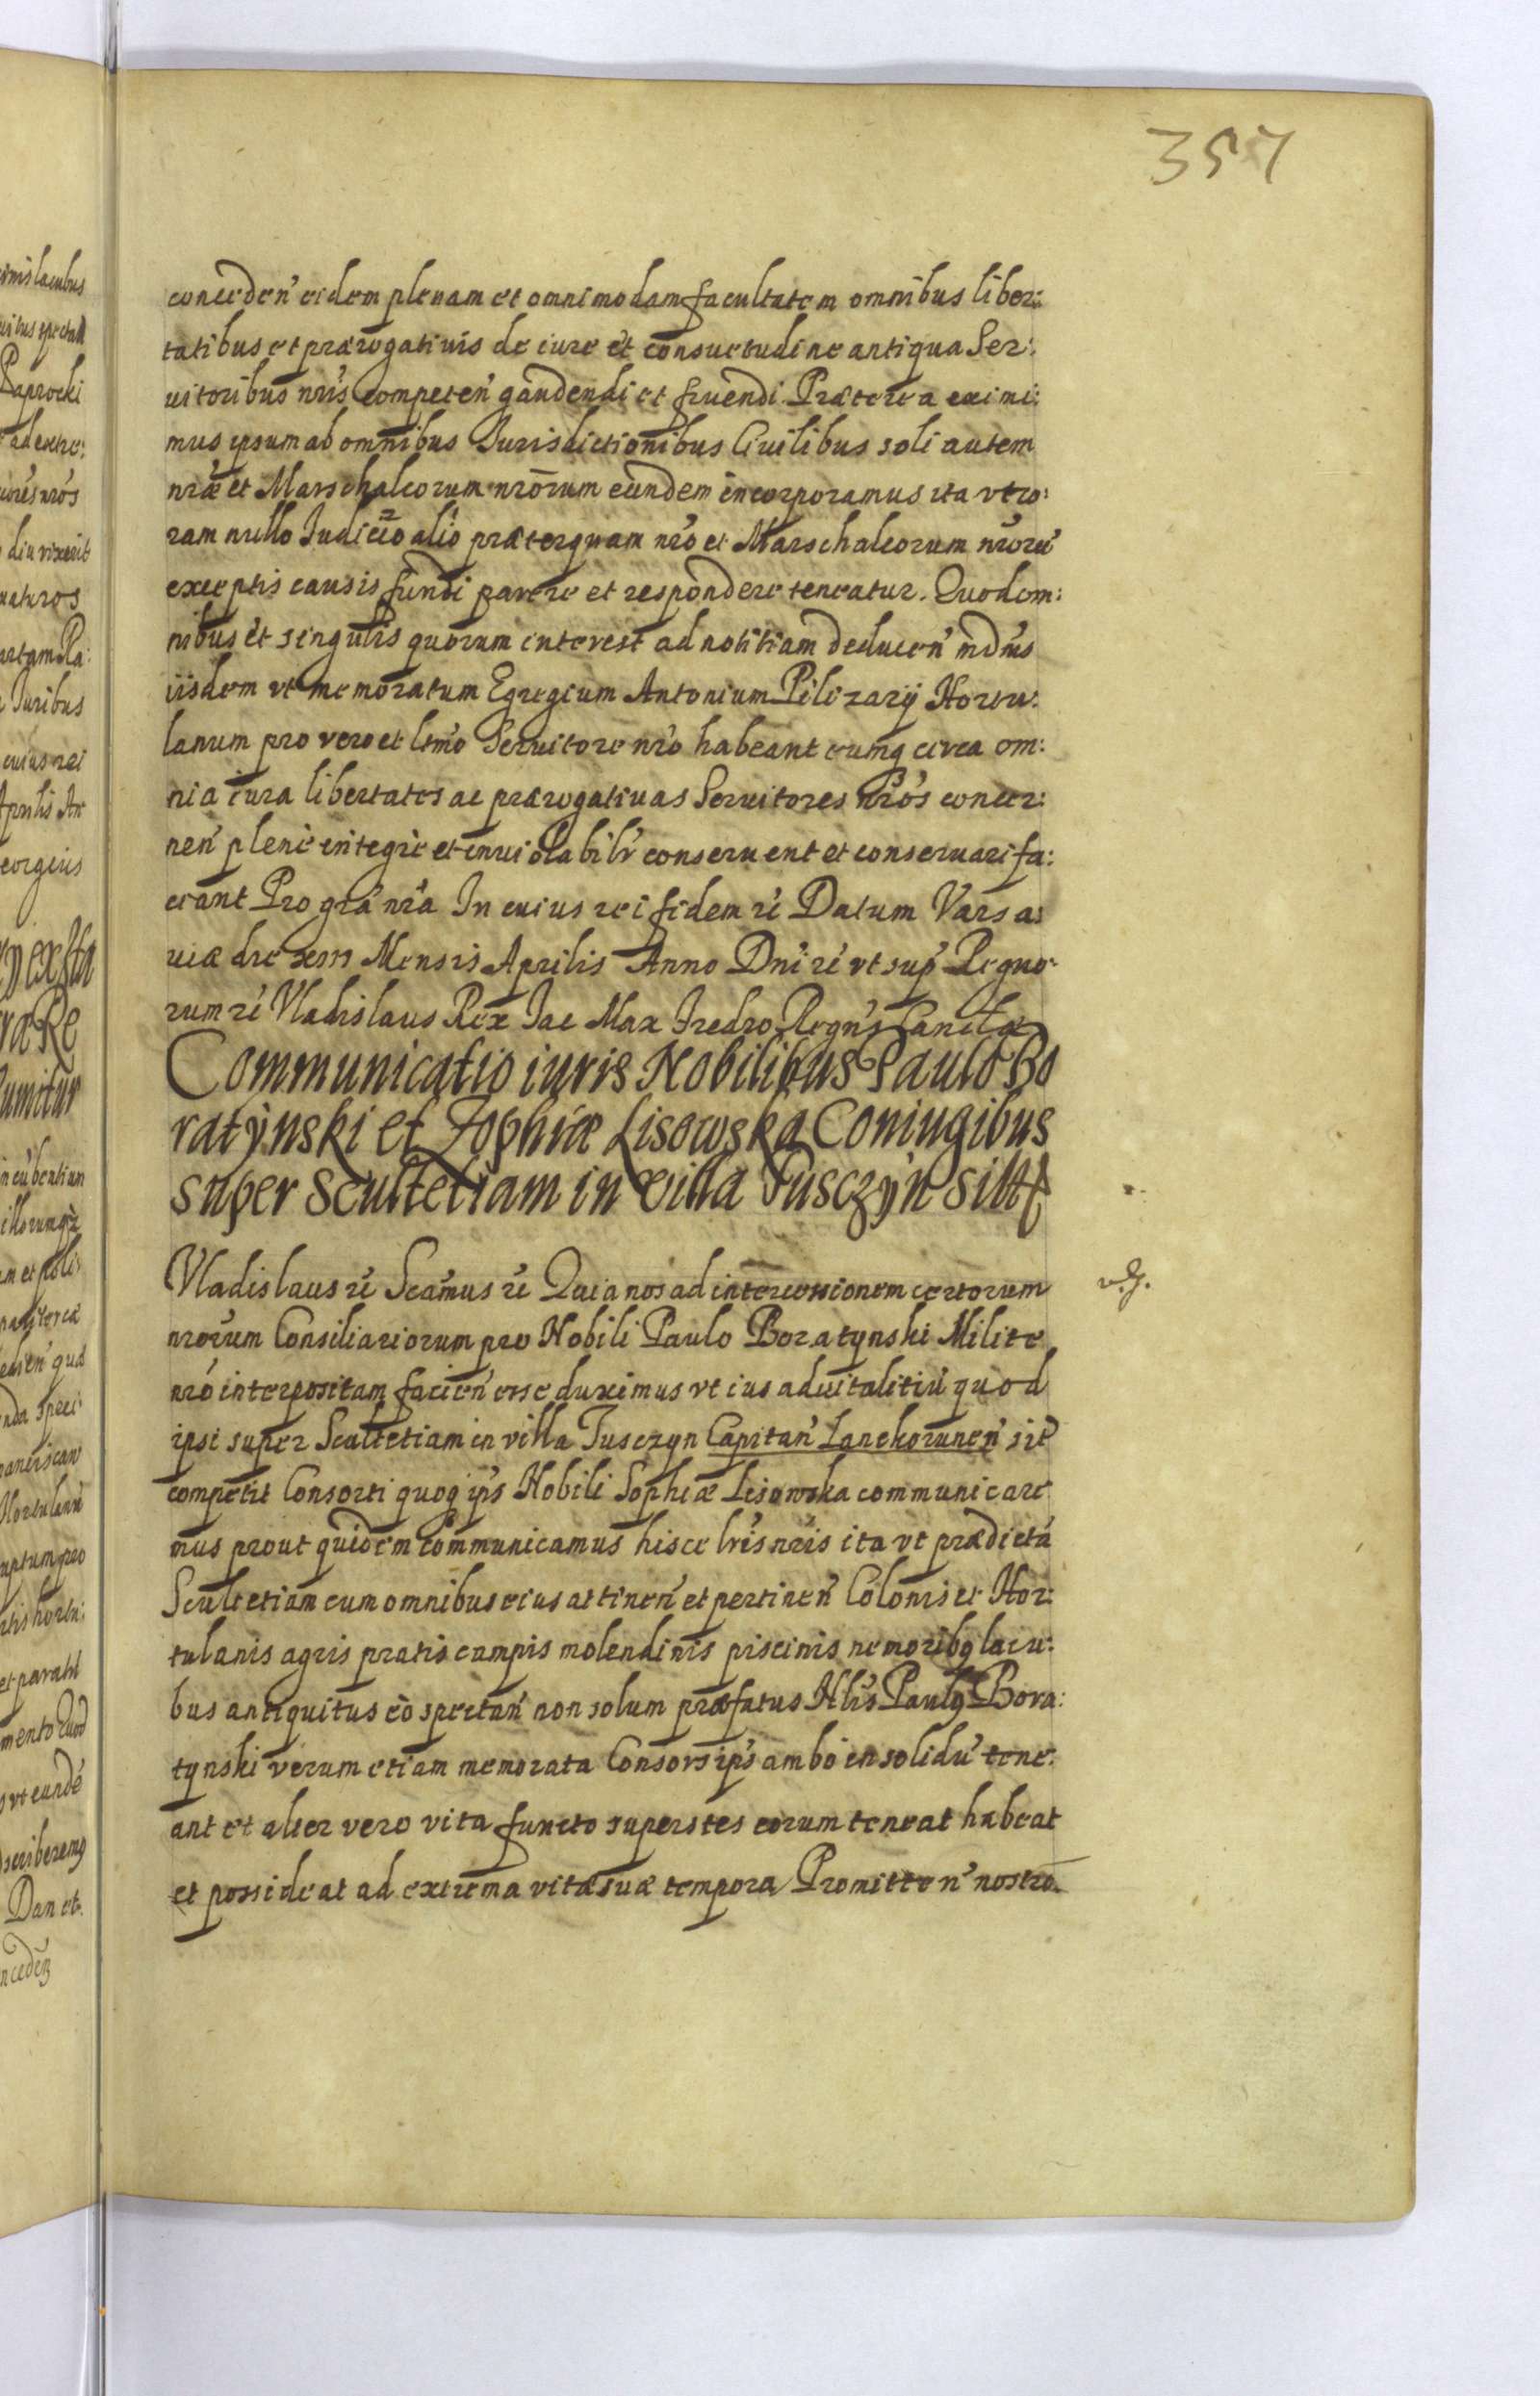 357
conceden̄ eidem plenam et omnimodam facultatem omnibus liber:
tatibus et prærogatiuis de iure et consuetudine antiqua Ser:
uitoribus nr̄is competen̄ gaudendi et fruendi Præterea eximi:
mus ipsum ab omnibus Jurisdictionibus Ciuilibus soli autem
nr̄æ et Marschalcorum nr̄orum eundem incorporamus ita vt co:
ram nullo Judicio alio præterquam nr̄o et Marschalcorum nr̄orū
exceptis causis fundi parere et respondere teneatur. Quod om:
nibus et singulis quorum interest ad notitiam deducen̄ mdm̄s
iisdem vt memoratum Egregium Antonium Pilizarij Hortu:
lanum pro vero et ltm̄o Seruitore nr̄o habeant eumq circa om:
nia iura libertates ac prærogatiuas Seruitores nr̄os concer:
nen̄ plene integre et inuiolabilr̄ conseruent et conseruari fa:
ciant Pro gra̅ nr̄a In cuius rei fidem rē Datum Varsa:
uiæ die Mensis Aprilis Anno Dni̅ rē vt sup̄ Regno:
rum rē Vladislaus Rex Jac Max Fredro Regn̄s Cancłæ
Communicatio iuris Nobilibus Paulo Bo
ratynski et Zophiæ Lisowska Coniugibus
super Scultetiam in villa Tusczyn sitt
Vladislaus rē Scamus rē Quia nos ad intercessionem certorum
nr̄orum Consiliariorum pro Nobili Paulo Boratynski Milite
nr̄o interpositam facien̄ esse duximus vt ius aduitalitiū quod
ipsi super Scultetiam in villa Tusczyn Capitan̄ Lanckorunen̄ sit
competit Consorti quoq ip̄s Nobili Sophiæ Lisowska communicare
mus prout quidem communicamus hisce lr̄is nr̄is ita vt prædictā
Scultetiam cum omnibus eius attinen̄ et pertinen̄ Colonis et Hor:
tulanis agris pratis campis molendinis piscinis nemoribq lacu:
bus antiquitus eò spectan̄ non solum præfatus Nłis Paulq Bora:
tynski verum etiam memorata Consors ip̄s ambo in solidū tene:
ant et alter vero vita functo superstes eorum teneat habeat
et possideat ad extrema vitæ suæ tempora Promitten̄ nostro